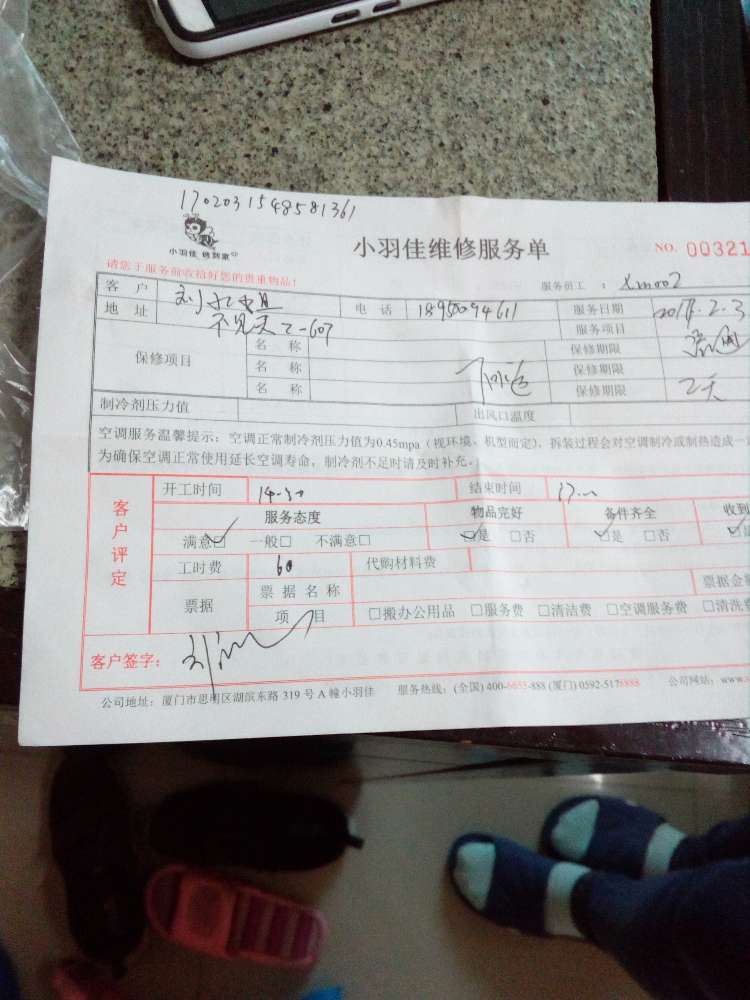 1702031548581361
小羽佳 修到家
小羽佳维修服务单
NO. 00321
请您于服务前收拾好您的贵重物品!
服务员工 : Xm002
客 户 刘
地 址 不见天2-607 电 话 18950094611 服务日期
服务项目
保修项目 名 称 保修期限
名 称 保修期限
名 称 保修期限
制冷剂压力值 出风口温度
空调服务温馨提示:空调正常制冷剂压力值为0.45mpa(视环境、机型而定),拆装过程会对空调制冷或制热造成一
为确保空调正常使用延长空调寿命,制冷剂不足时请及时补充。
客户评定
开工时间 14:30 结束时间
服务态度 物品完好 备件齐全 收到
满意□ 一般□ 不满意□ □是 □否 □是 □否
工时费 60 代购材料费
票据 票 据 名 称 票据金
项 目 □搬办公用品 □服务费 □清洁费 □空调服务费 □清洗费
客户签字:
公司地址:厦门市思明区湖滨东路 319 号 A 幢小羽佳 服务热线:(全国) 400-6655-888 (厦门) 0592-5178888 公司网站:www.